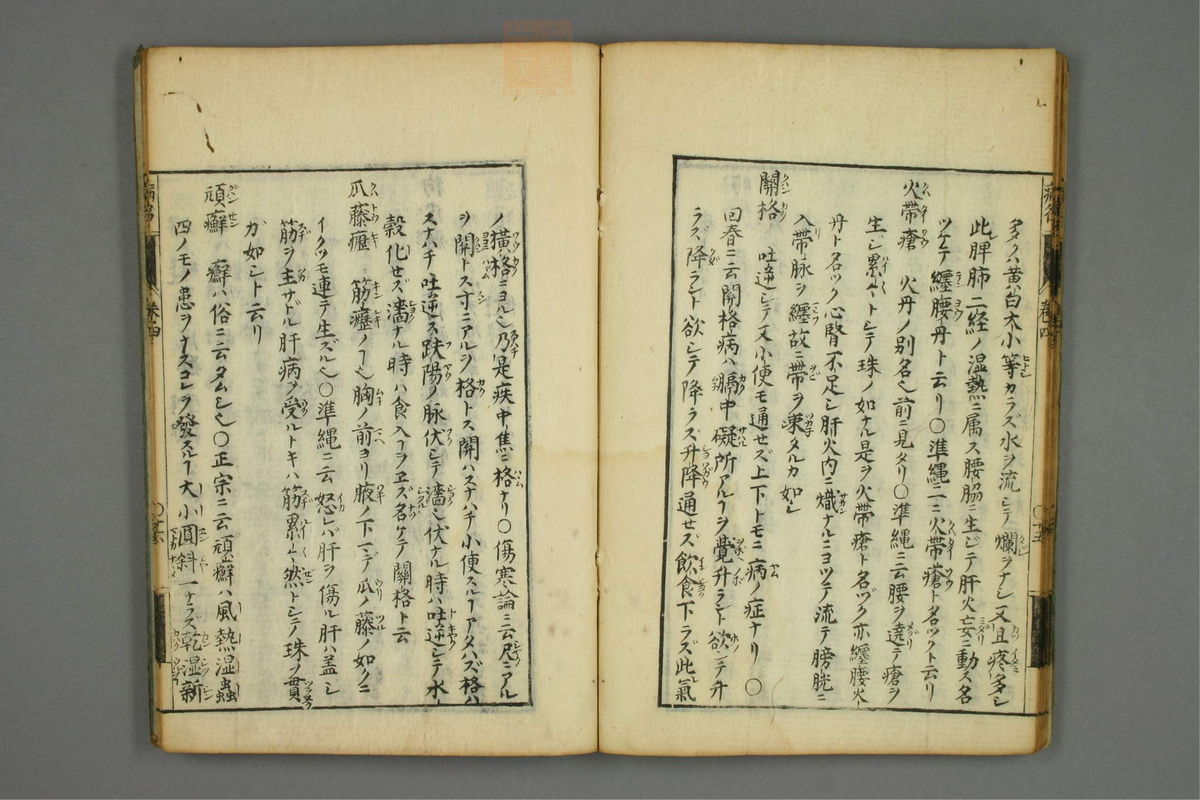 多クハ黄白大小等カラズ水ヲ流シテ爛ヲナシ又且疼多シ
此脾肺二経ノ湿熱ニ属ス腰脇ニ生ジテ肝火妄ニ動ス名
ツケテ纏腰丹ト云リ〇準縄ニ火帯瘡ト名ツクト云リ
火帯瘡 火丹ノ別名也前ニ見タリ〇準縄ニ云腰ヲ遶テ瘡ヲ
生シ累々トシテ珠ノ如ナル是ヲ火帯瘡ト名ヅク亦纏腰火
丹ト名ツク心腎不足シ肝火内ニ熾ナルニヨツテ流テ膀胱ニ
入帯脉ヲ纏故ニ帯ヲ束タルカ如シ
關格 吐逆シテ又小便モ通セズ上下トモニ病ノ症ナリ〇
回春ニ云関格病ハ膈中礙所アルヿヲ覺升ラント欲シテ升
ラズ降ラント欲シテ降ラズ升降通セズ飲食下ラズ此氣
ノ横格ニヨル也乃是疾中焦ニ格ナリ〇傷寒論ニ云尺ニアル
ヲ関トス寸ニアルヲ格トス関ハスナハチ小便スルヿアタハズ格ハ
スナハチ吐逆ス趺陽ノ脉伏シテ濇シ伏ナル時ハ吐逆シテ水
穀化セズ濇ナル時ハ食入ヿヲヱズ名ケテ關格ト云
瓜藤癧 筋癧ノヿ也胸ノ前ヨリ腋ノ下マデ瓜ノ藤ノ如クニ
イクツモ連テ生ズル也〇準縄ニ云怒レバ肝ヲ傷ル肝ハ盖シ
筋ヲ主サドル肝病ヲ受ルトキハ筋累々然トシテ珠ヲ貫
ガ如シト云リ
頑癬 癬ハ俗ニ云タムシ也〇正宗ニ云頑癬ハ風熱湿蟲
四ノモノ患ヲナスコレヲ發スルヿ大小圓斜一ナラズ乾湿新
巻四
巻四